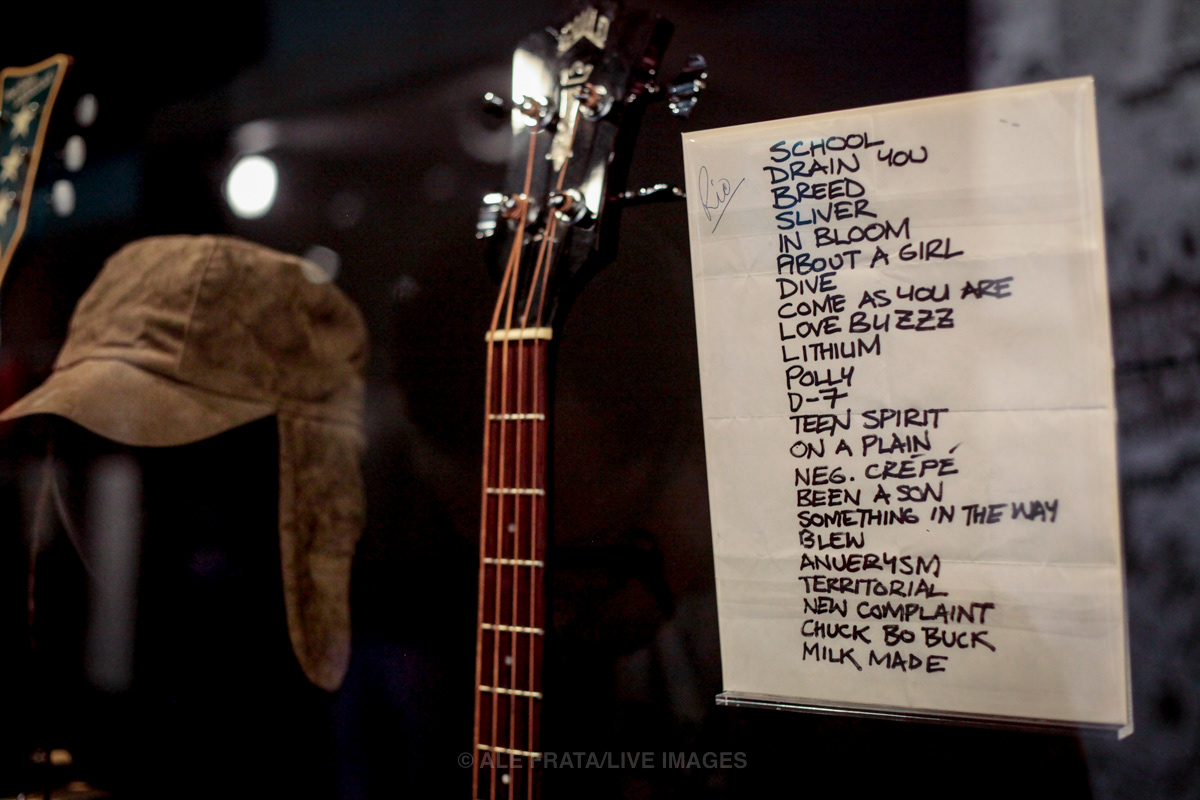 Rio
SCHOOL
DRAIN YOU
BREED
SLIVER
IN BLOOM
ABOUT A GIRL
DIVE
COME AS YOU ARE
LOVE BUZZZ
LITHIUM
POLLY
D-7
TEEN SPIRIT
ON A PLAIN
NEG. CRÉPÉ
BEEN A SON
SOMETHING IN THE WAY
BLEW
ANUERYSM
TERRITORIAL
NEW COMPLAINT
CHUCK BO BUCK
MILK MADE
© ALE PRATA/LIVE IMAGES